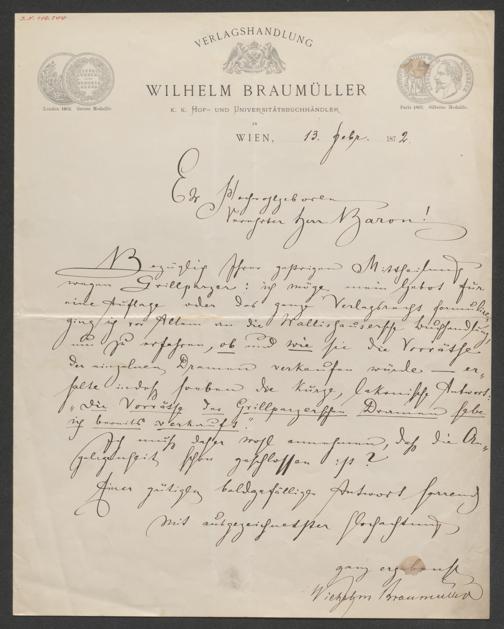 VERLAGSHANDLUNG
WILHELM BRAUMÜLLER
K. K. HOF- UND UNIVERSITÄTSBUCHHÄNDLER
IN
London 1862. Grosse Medaille.
Paris 1867. Silberne Medaille.
WIEN, 13. Febr. 1872.
Ew Hochwohlgeboren
Verehrter Herr Baron!
Bezüglich Ihrer gestrigen Mittheilung
wegen Grillparzer: ich möge mein Gebot für
eine Auflage oder das ganze Verlagsrecht formuliren
ging ich vor Allem an die Wallishausersche Buchhandlung
um zu erfahren, ob und wie sie die Vorräthe
der einzelnen Dramen verkaufen würde — er-
halte indeß soeben die kurze, lakonische Antwort
„die Vorräthe der Grillparzerschen Dramen habe
ich bereits verkauft."
Ich muß daher wohl annehmen, daß die An-
gelegenheit schon geschlossen ist?
Einer gütigen baldgefälligen Antwort harrend
Mit ausgezeichnetster Hochachtung
ganz ergebenst
Wilhelm Braumüller